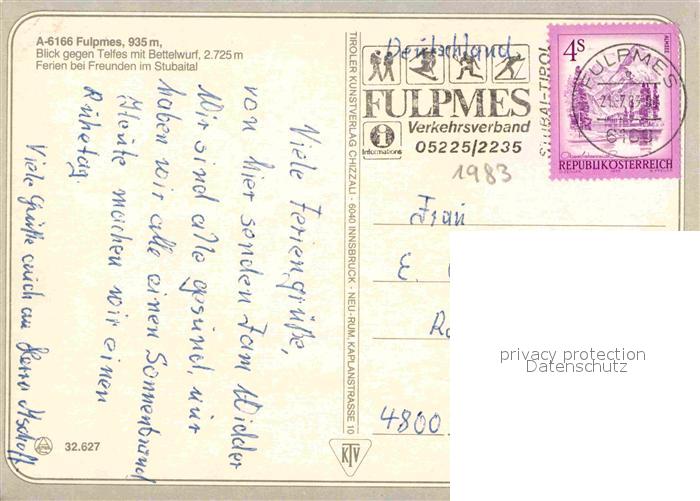 A-6166 Fulpmes, 935 m,
Blick gegen Telfes mit Bettelwurf, 2.725 m
Ferien bei Freunden im Stubaital
Viele Feriengrüße,
von hier senden Fam Widder
Wir sind alle gesund, nur
haben wir alle einen Sonnenbrand
Heute machen wir einen
Ruhetag.
Viele Grüße auch an Herrn
32.627
TIROLER KUNSTVERLAG CHIZZALI · 6040 INNSBRUCK - NEU-RUM, KAPLANSTRASSE 10
KTV
Deutschland
FULPMES
Verkehrsverband
05225/2235
i
Informations
STUBAI-TIROL
FULPMES
21.7.83
4S
ALMSEE
REPUBLIK ÖSTERREICH
1983
Frau
E.
4800
privacy protection
Datenschutz